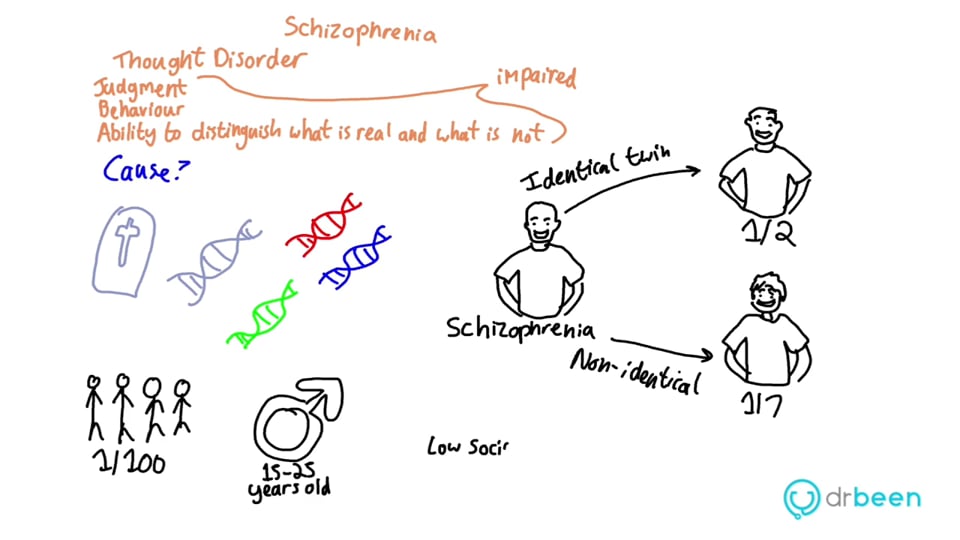 Schizophrenia
Thought Disorder
impaired
Judgment
Behaviour
Ability to distinguish what is real and what is not
Cause?
Identical twin
1/2
Schizophrenia
Non-identical
1/7
1/100
15-25
years old
Low Soci
drbeen